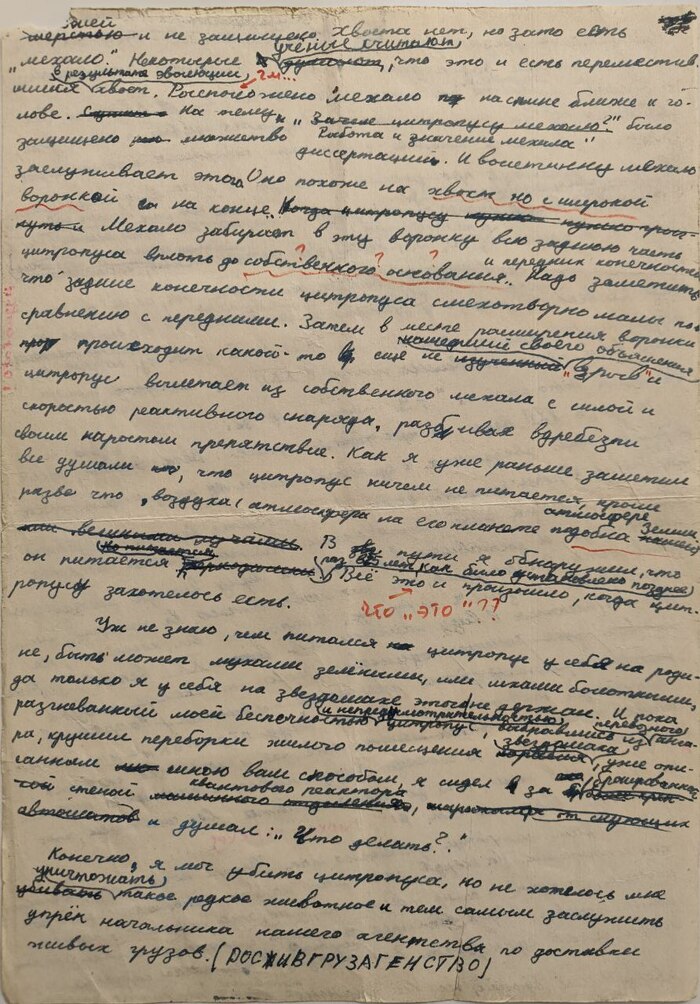 шерстью и не защищено. Хвоста нет, но зато есть
учёные считают
„мехало." Некоторые думают, что это и есть переместив-
в результате эволюции, гм...
шийся хвост. Расположено мехало на спине ближе к го-
лове. На тему „Зачем цитропусу мехало?" было
„Работа и значение мехала"
защищено множество диссертаций. И воистинну мехало
заслуживает этого. Оно похоже на хвост, но с широкой
воронкой на конце. Когда цитропусу нужно
Мехало забирает в эту воронку всю заднюю часть
и передние конечности
цитропуса вплоть до собственного основания. Надо заметить,
что задние конечности цитропуса смехотворно малы по
сравнению с передними. Затем в месте расширения воронки
нашедший своего объяснения
происходит какой-то ещё не изученный „взрыв" и
цитропус вылетает из собственного мехала с силой и
скоростью реактивного снаряда, разбивая вдребезги
своим наростом препятствие. Как я уже раньше заметил
все думали, что цитропус ничем не питается, кроме
атмосфере Земли
разве что, воздуха (атмосфера на его планете подобна нашей
В пути я обнаружил, что
но питается раз в лет, как было установлено позднее)
он питается Всё это и произошло, когда цит-
ропусу захотелось есть.
Что „это"??
Уж не знаю, чем питался цитропус у себя на роди-
не, быть может мухами зелёными, или мхами болотными,
да только я у себя на звездолаке этого не держал. И пока
и непредусмотрительностью
разгневанный моей беспечностью цитропус, выбравшись из грузового анга-
звездолака
ра, крушил переборки жилого помещения, уже опи-
санным мною вам способом, я сидел за бронированной
квантового реактора
стеной
автоматов и думал: „Что делать?"
Конечно, я мог убить цитропуса, но не хотелось мне
уничтожать
убивать такое редкое животное и тем самым заслужить
упрёк начальника нашего агентства по доставке
живых грузов. (РОСЖИВГРУЗАГЕНСТВО)